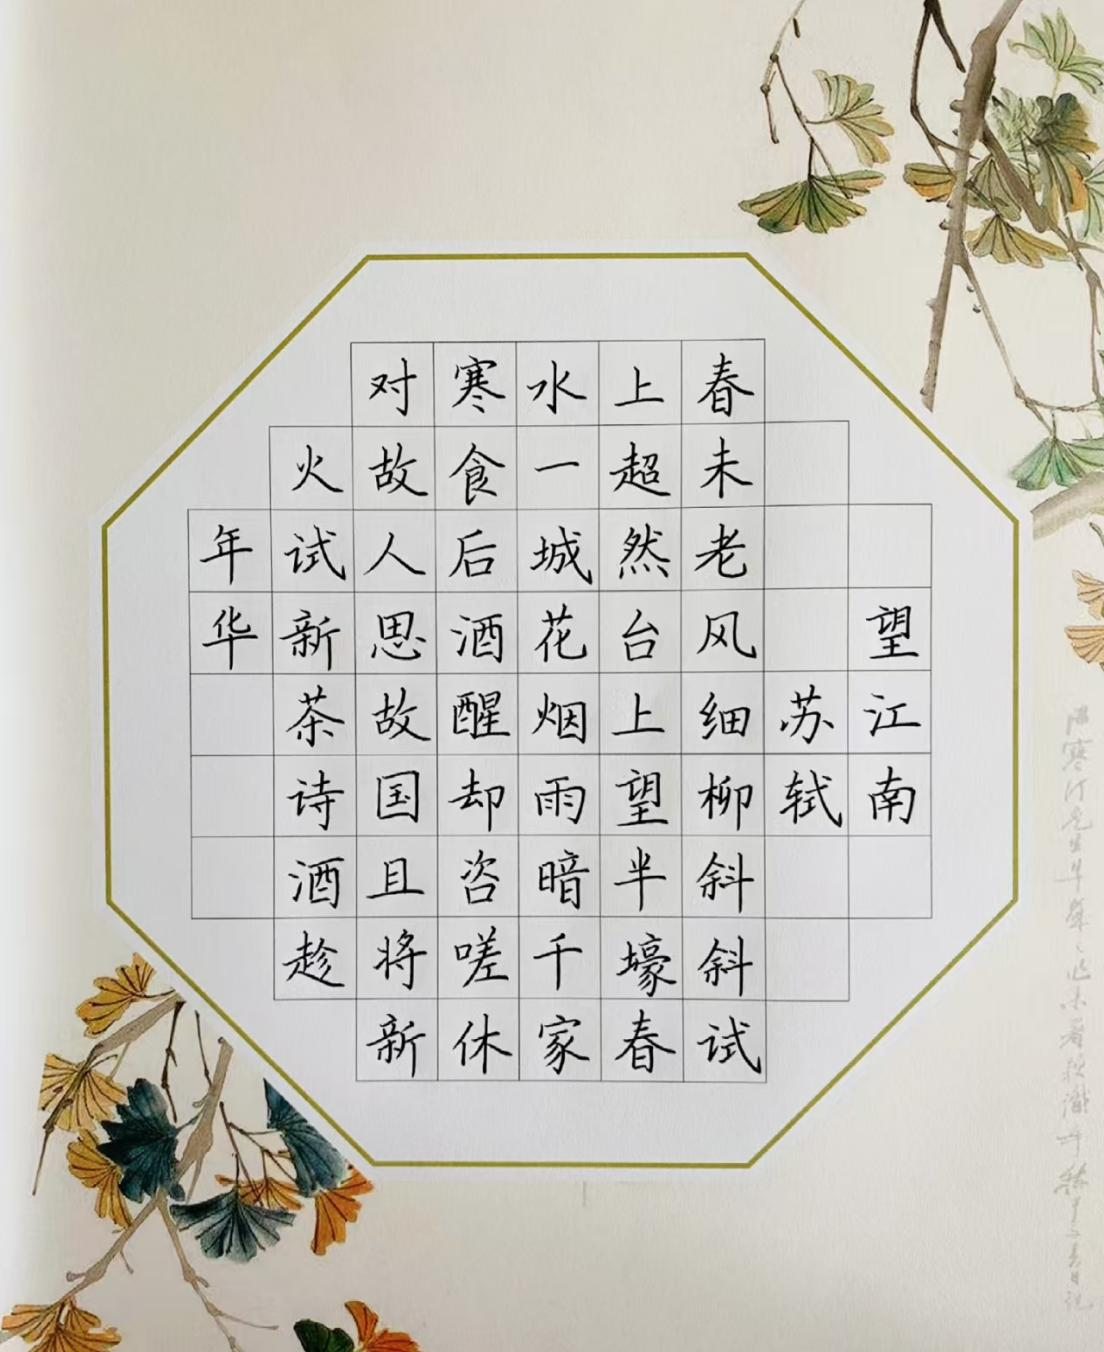 望江南
苏轼
春未老风细柳斜斜试
上超然台上望半壕春
水一城花烟雨暗千家
寒食后酒醒却咨嗟休
对故人思故国且将新
火试新茶诗酒趁
年华